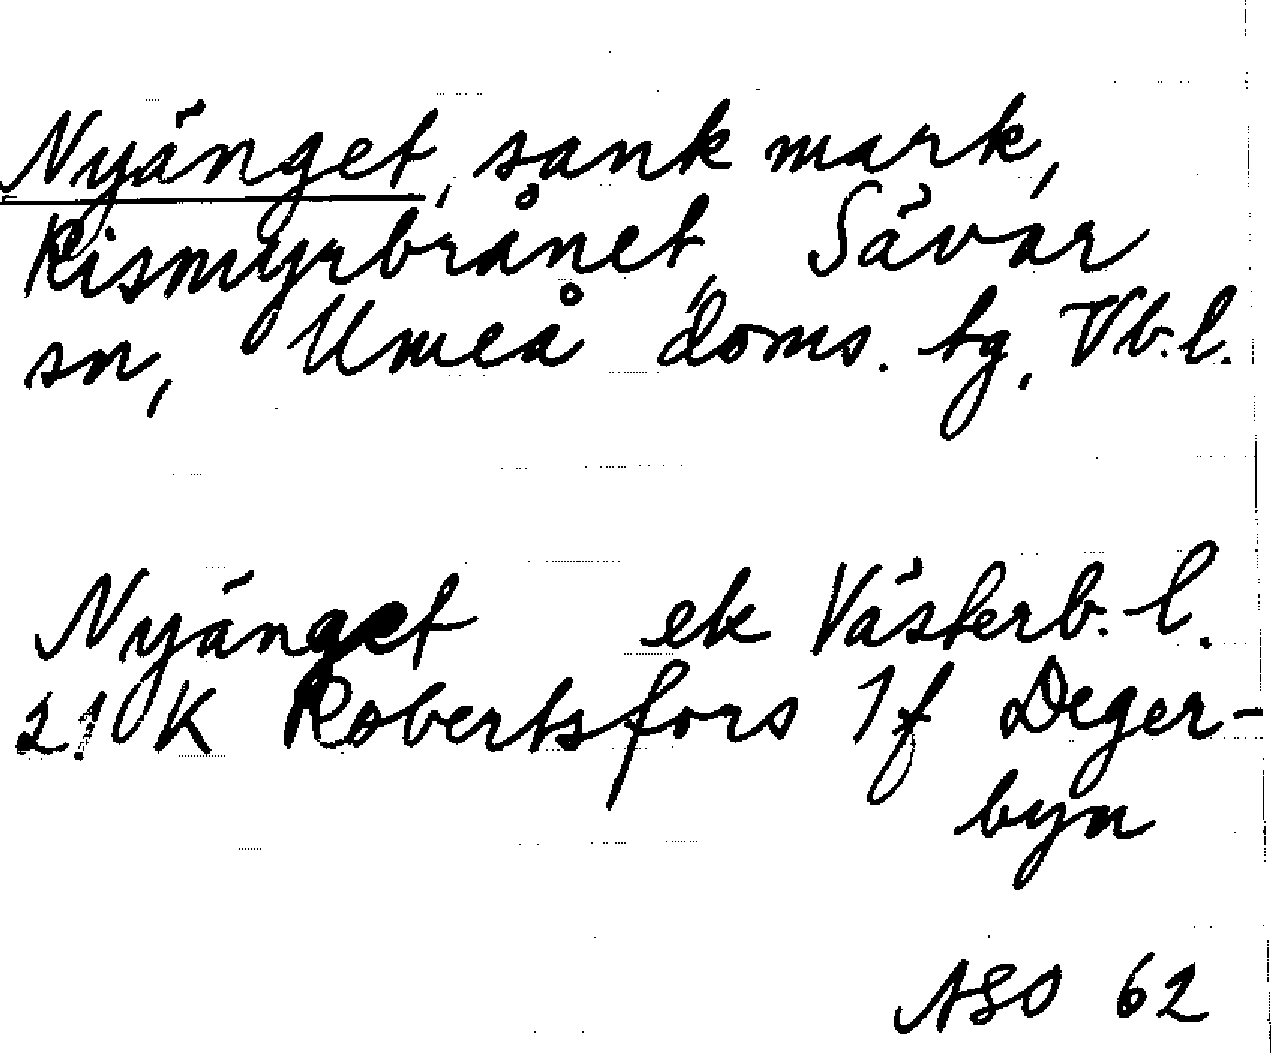 Nyänget, sank mark,
Rismyrbrånet, Sävar
sn, Umeå doms. tg, Vb. l.
Nyänget ek Västerb. l.
21 K Robertsfors 1 f Deger-
byn
ASO 62